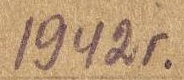 1942г.